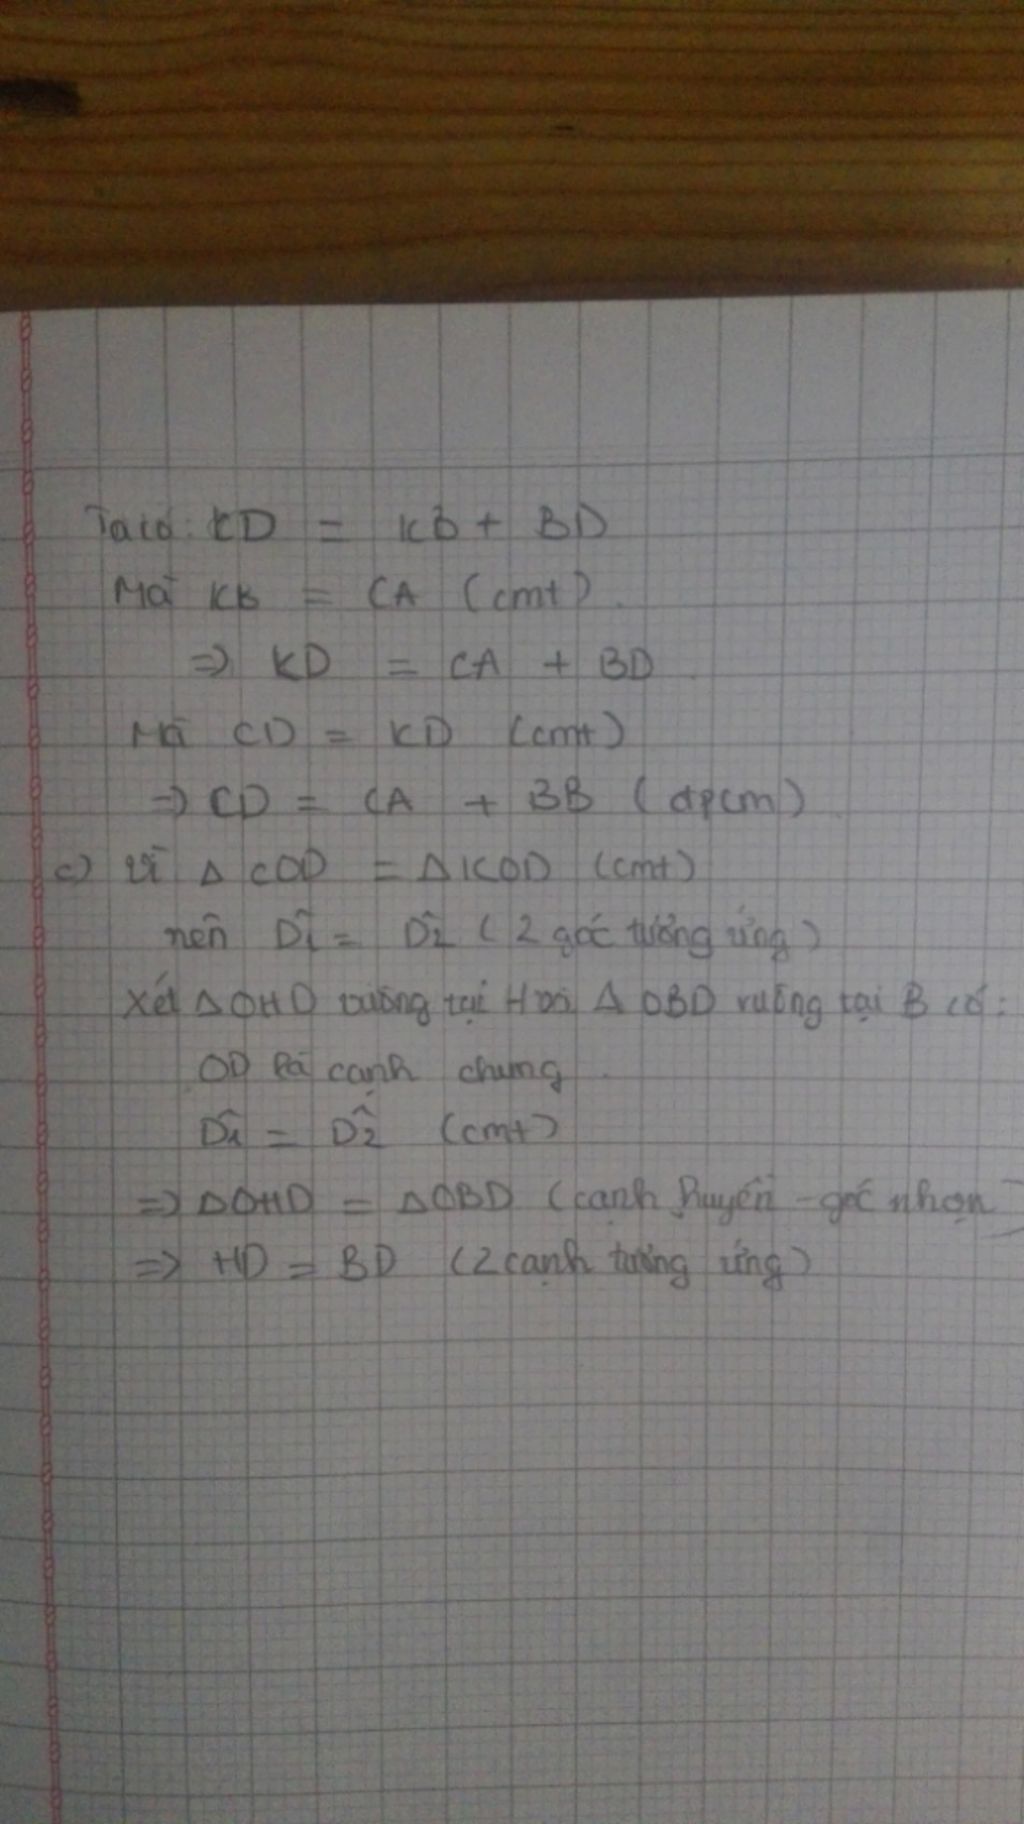 Ta có: KD = KB + BD
Mà KB = CA (cmt).
=> KD = CA + BD.
Mà CD = KD (cmt)
=> CD = CA + BB (đpcm)
c) Vì Δ COD = Δ KOD (cmt)
nên D̂₁ = D̂₂ (2 góc tương ứng)
Xét Δ OHD vuông tại H với Δ OBD vuông tại B có:
OD là cạnh chung.
D̂₁ = D̂₂ (cmt)
=> Δ OHD = Δ OBD (cạnh huyền - góc nhọn)
=> HD = BD (2 cạnh tương ứng)